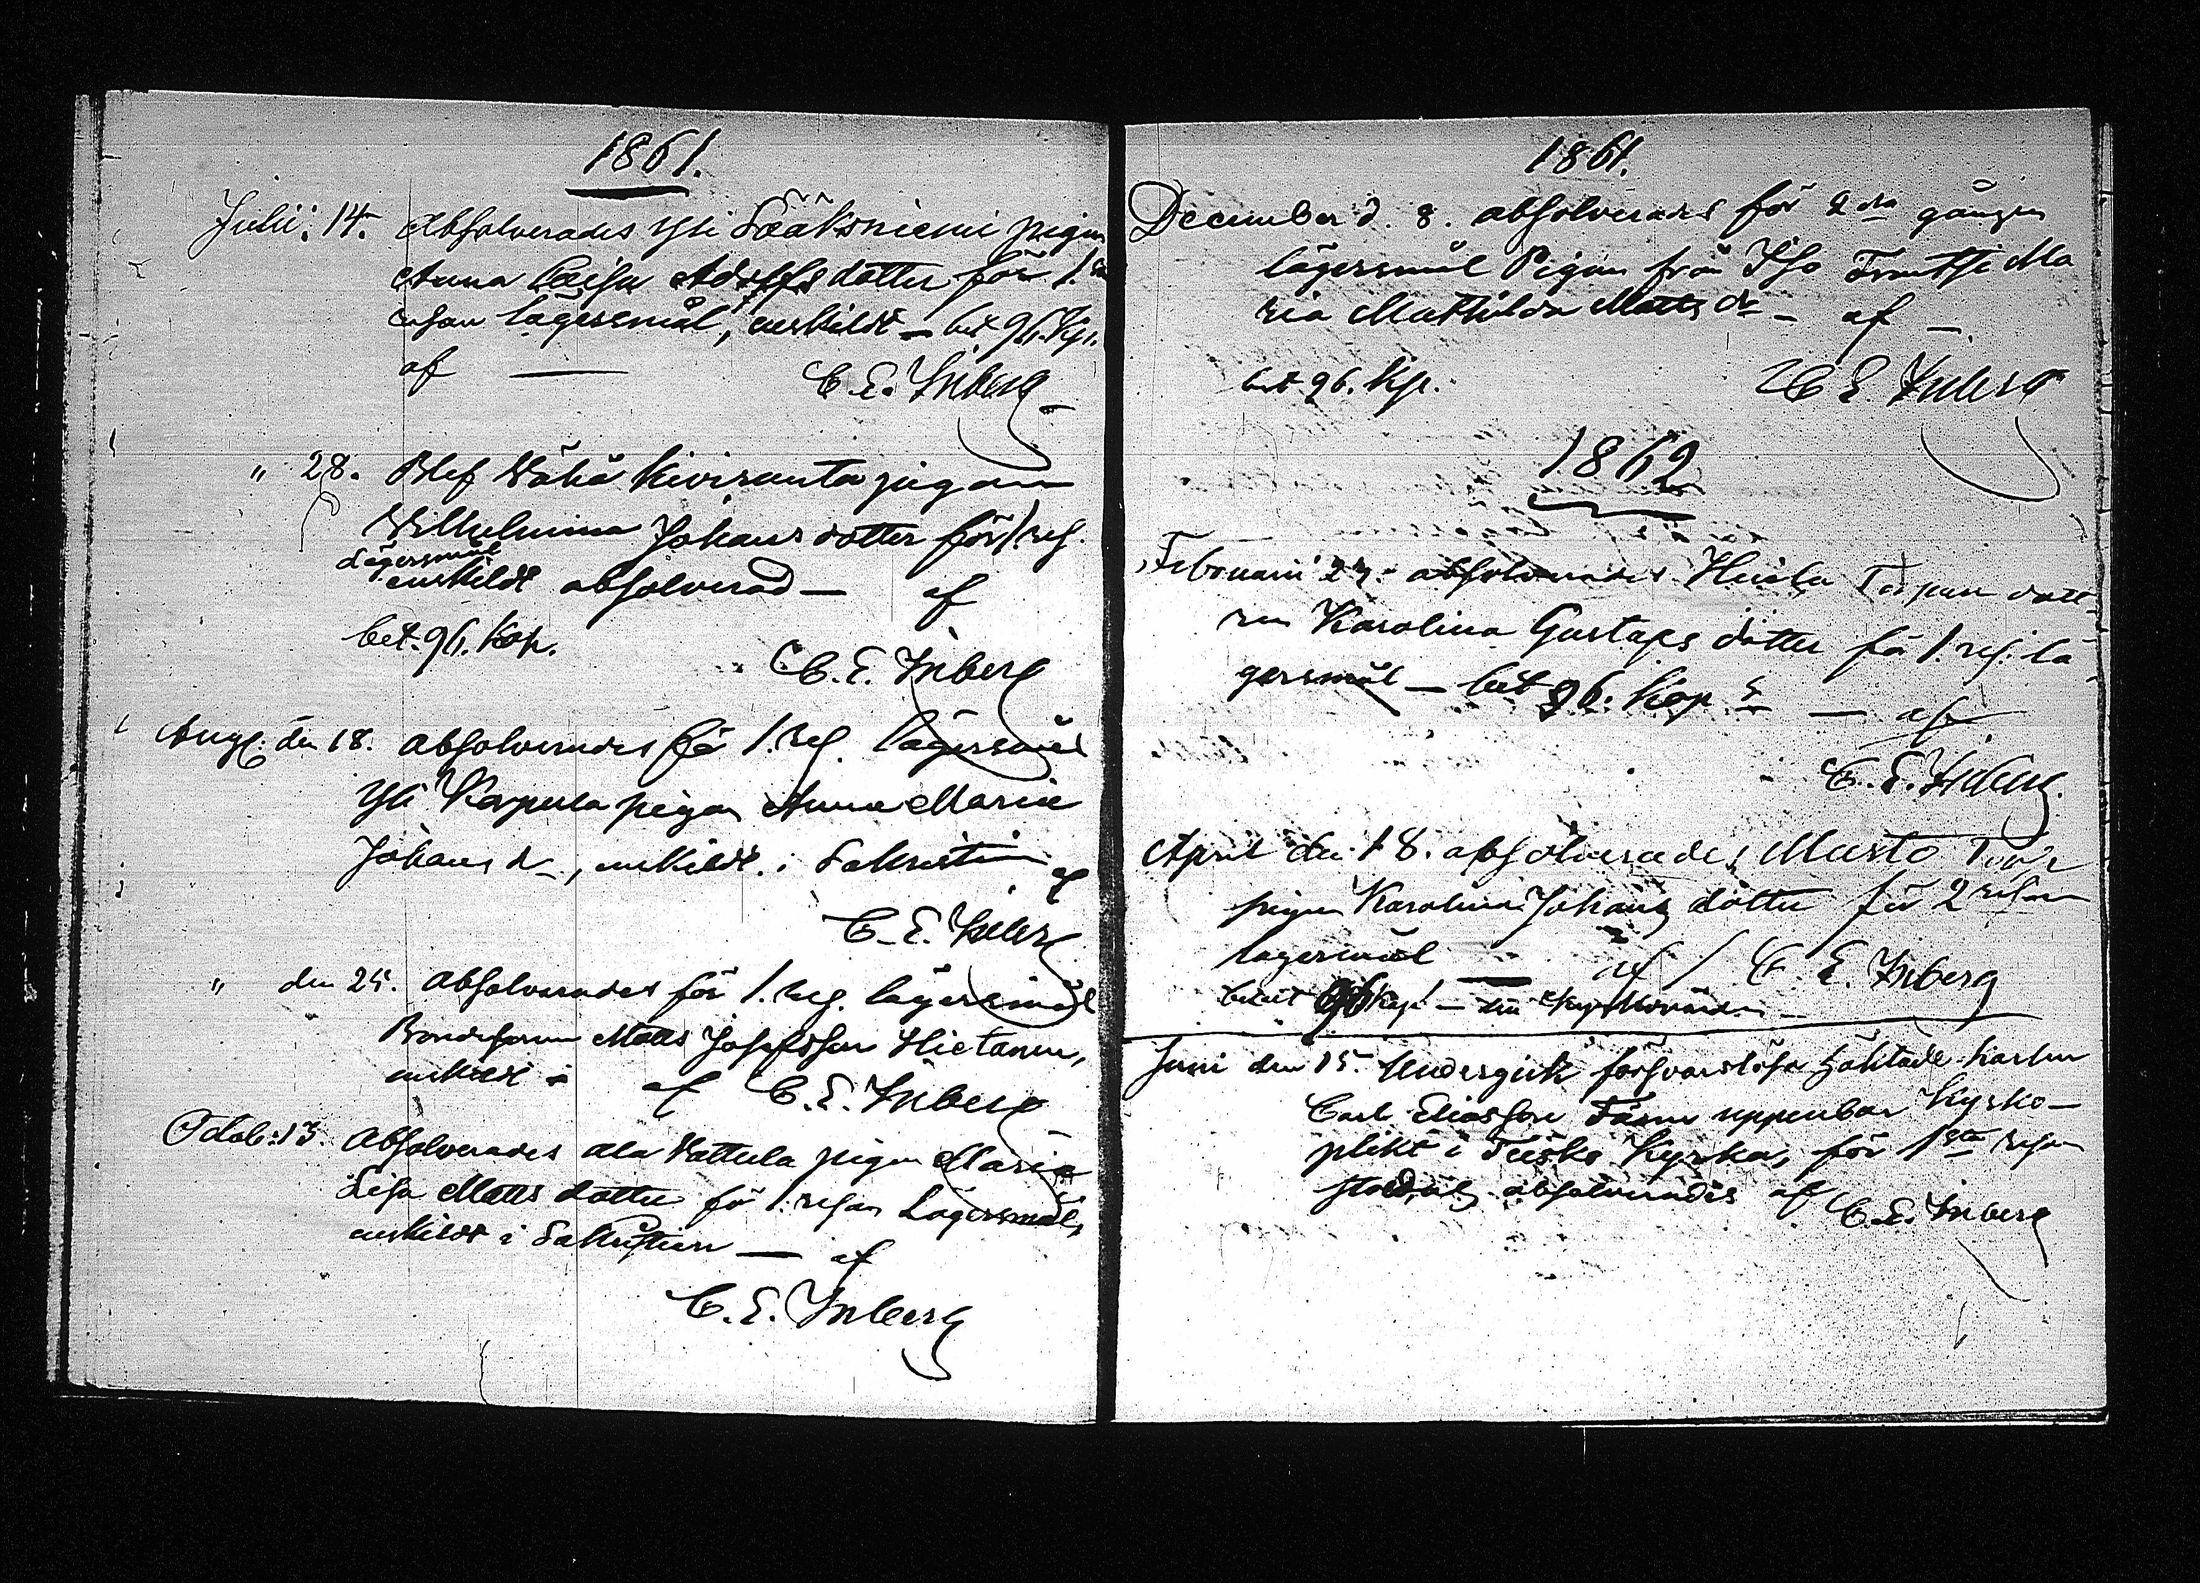 1861.
Julii: 14. Absolverades Yli Sääksniemi pigan
Anna Caisa Adolfsdotter för 1.
resan lägersmål, enskildt – bet 96. Kp.
af —
C. E. Inberg
" 28. Blef Vähä Kiviranta pigan
Wilhelmina Johansdotter för 1. res.
Lägersmål
enskildt absolverad — af
bet. 96. Kop.
C. E. Inberg
Aug. den 18. absolverades för 1. res. lägersmål
Yli Karpula pigan Anna Maria
Johans dr, enskildt i Sakristin
af
C. E. Inberg
" den 25. absolverades för 1. res. lägersmål
Bondesonen Matts Josefsson Hietanen,
enskildt – af C. E. Inberg
Octob: 13. Absolverades Ala Vattula pigan Maria
Lisa Matts dotter för 1. resan Lägersmål,
enskildt i Sakristian — af
C. E. Inberg
1861.
December d. 8. absolverades för 2dra gången
lägersmål Pigan från Iso Ma
ria Mathilda Matts dr – af –
bet 96. Kp.
C E Inberg
1862
Februarii 23. absolverades dott
ren Karolina Gustafs dotter för 1. res. lä
gersmål — bet 96. Kop r — af
C. E. Inberg.
April den 18. absolverades Musto
pigan Karolina Johans dotter för 2 resan
lägersmål — af / C. E. Inberg
betalt 96 Kop. – Kyrkovärden –
Juni den 15. Undergick försvarslöse karlen
Carl Eliasson uppenbar Kyrko–
plikt i Teisko Kyrka, för 1sta resan
stöld, och absolverades af C. E. Inberg